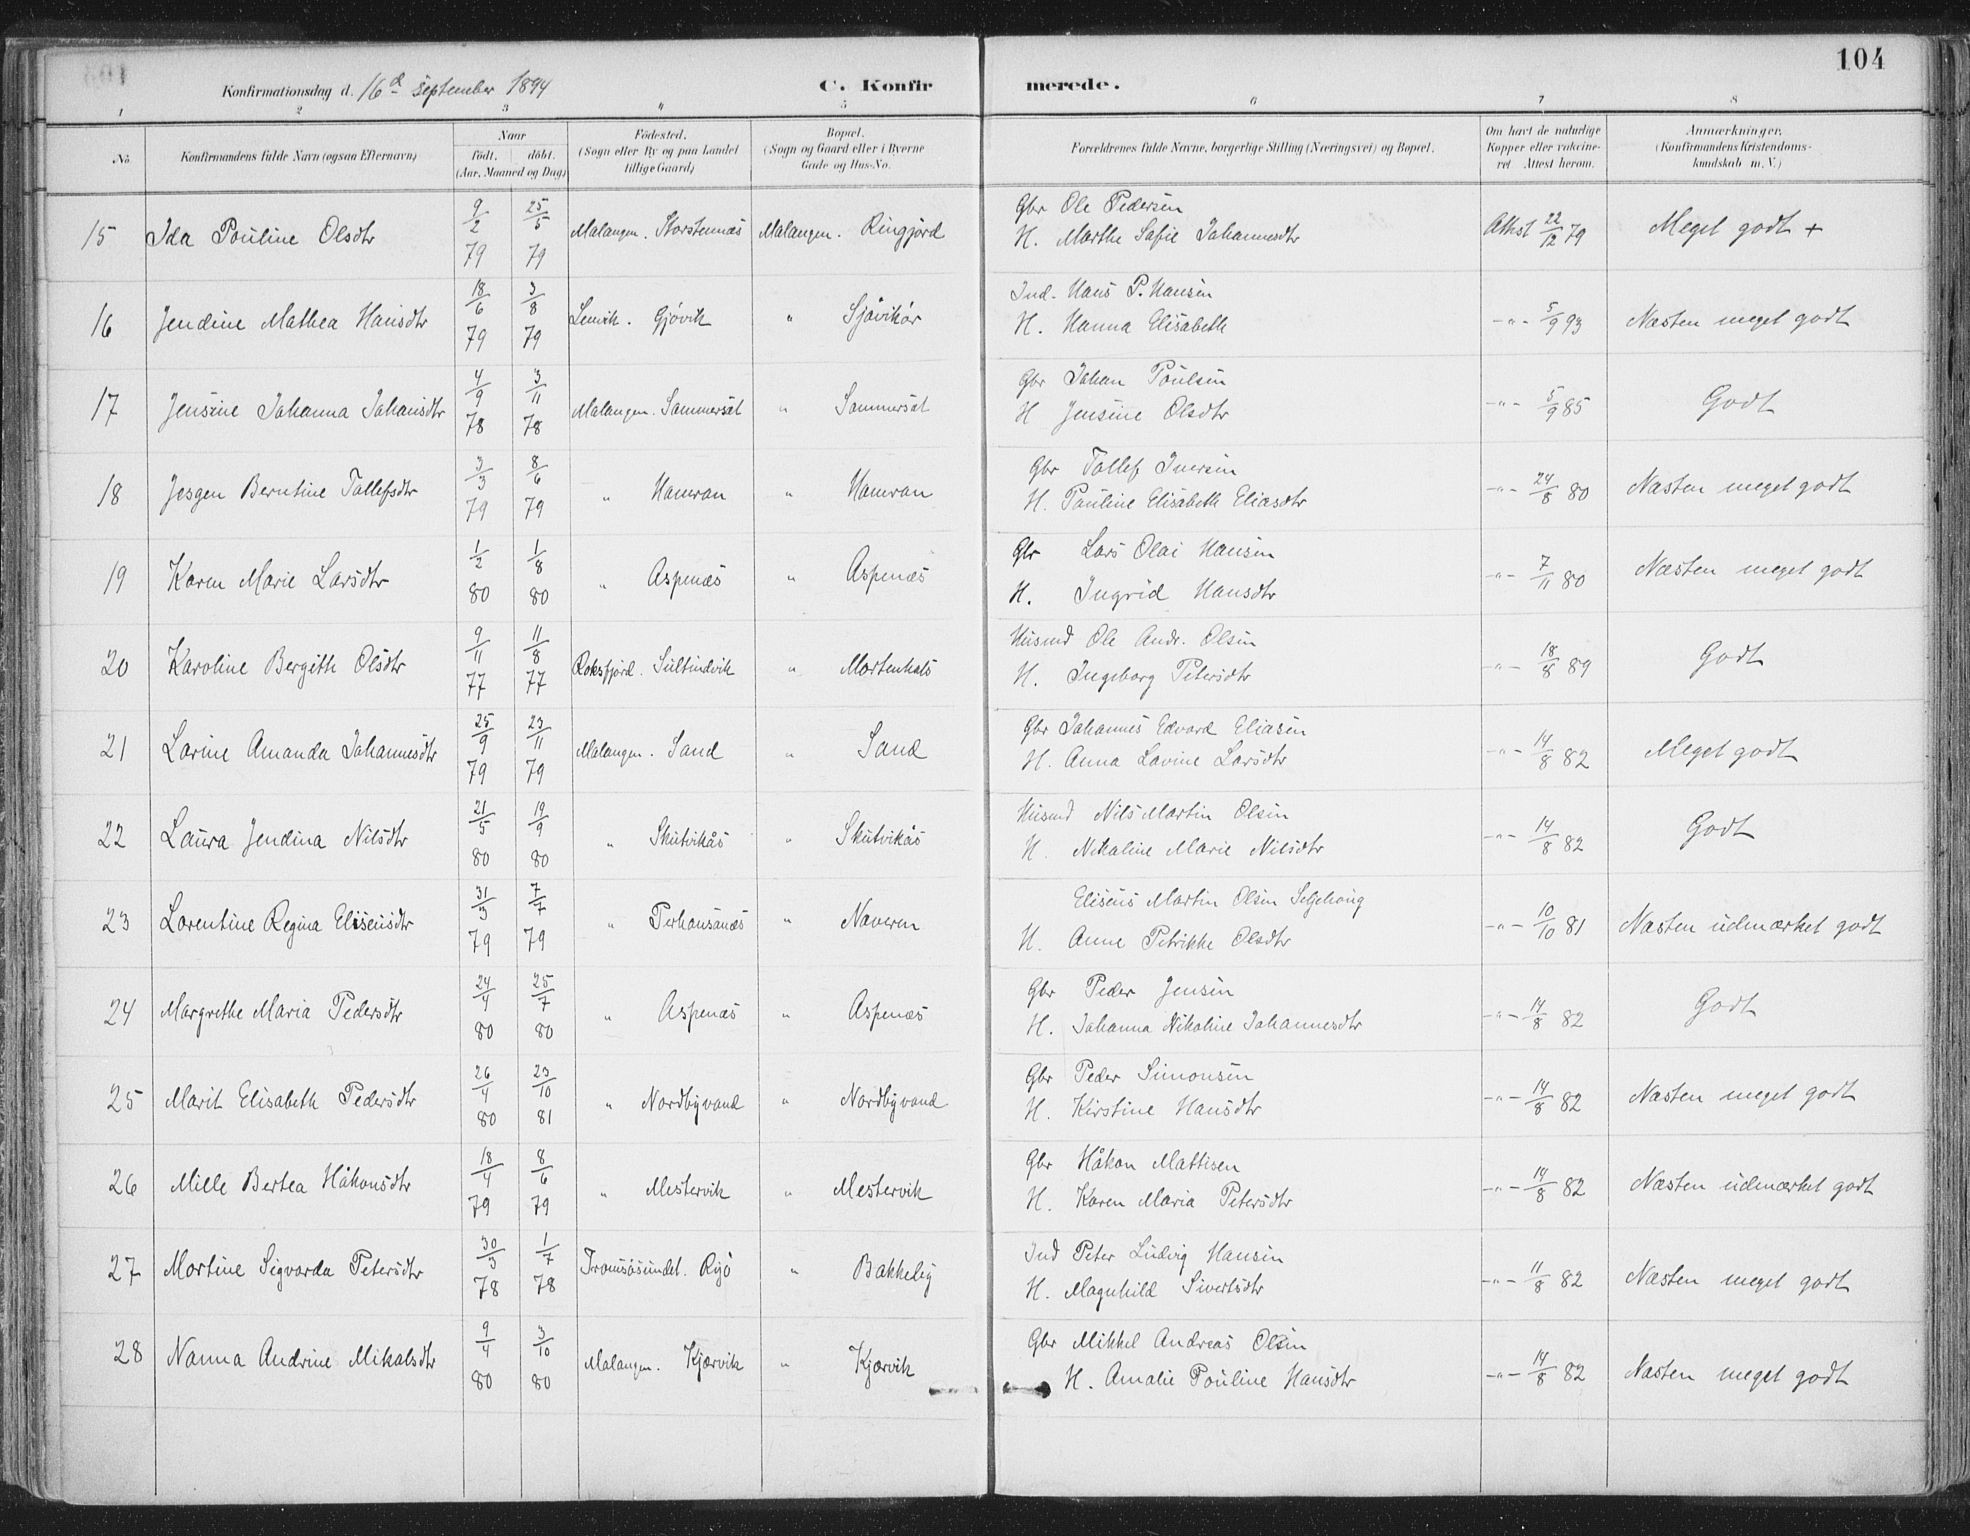 104
Konfirmationsdag d. 16d september 1894
C. Konfirmerede.
1 2 3 4 5 6 7 8
No.
Konfirmandens fulde Navn (ogsaa Efternavn)
Naar
født. døbt.
(Aar, Maaned og Dag)
Fødested.
(Sogn eller By og paa Landet
tillige Gaard)
Bopæl.
(Sogn og Gaard eller i Byerne
Gade og Hus-No.
Forældrenes fulde Navne, borgerlige Stilling (Næringsvei) og Bopæl.
Om havt de naturlige
Kopper eller vakcine-
ret Attest herom.
Anmærkninger.
(Konfirmandens Kristendoms-
kundskab m. V.)
15 Ida Pouline Olsdtr 9/2 79 25/5 79 Malangen. Storstennæs Malangen. Ringjord
Gbr Ole Pedersen
H. Marthe Safie Johannesdtr
Attest 22/12 79 Meget godt +
16 Jendine Mathea Hansdtr 18/6 79 3/8 79 Lenvik. Gjövik " Sjåvikör
Ind. Hans P. Hansen
H. Hanna Elisabeth
-"- 5/9 93 Næsten meget godt
17 Jensine Johanna Johansdtr 4/9 78 3/11 78 Malangen. Sammersæt " Sammersæt
Gbr Johan Poulsen
H Jensine Olsdtr
-"- 5/9 85 Godt
18 Jesgen Berntine Tollefsdtr 3/3 79 8/6 79 " Hamran " Hamran
Gbr Tollef Iversen
H. Pauline Elisabeth Eliasdtr
-"- 24/8 80 Næsten meget godt
19 Karen Marie Larsdtr 1/2 80 1/8 80 " Aspenæs " Aspenæs
Gbr Lars Olai Hansen
H. Ingrid Hansdtr
-"- 7/11 80 Næsten meget godt
20 Karoline Bergith Olsdtr 9/11 77 11/8 77 Roksfjord. Sultindvik " Mortenhals
Husmd Ole Andr. Olsen
H. Ingeborg Petersdtr
-"- 18/8 89 Godt
21 Larine Amanda Johannesdtr 25/9 79 23/11 79 Malangen. Sand " Sand
Gbr Johannes Edvard Eliasen
H. Anna Lavine Larsdtr
-"- 14/8 82 Meget godt
22 Laura Jendina Nilsdtr 21/5 80 19/9 80 " Skutvikås " Skutvikås
Husmd Nils Martin Olsen
H. Nikaline Marie Nilsdtr
-"- 14/8 82 Godt
23 Lorentine Regina Eliseusdtr 31/3 79 7/7 79 " Perhansanæs " Naveren
Eliseus Martin Olsen Seljehoug
H. Anne Petrikke Olsdtr
-"- 10/10 81 Næsten udmærket godt
24 Margrethe Maria Pedersdtr 24/4 80 25/7 80 " Aspenæs " Aspenæs
Gbr Peder Jensen
H. Johanna Nikoline Johannesdtr
-"- 14/8 82 Godt
25 Marit Elisabeth Pedersdtr 26/4 80 23/10 81 " Nordbyvand " Nordbyvand
Gbr Peder Simonsen
H. Kirstine Hansdtr
-"- 14/8 82 Næsten meget godt
26 Mille Bertea Håkonsdtr 18/4 79 8/6 79 " Mestervik " Mestervik
Gbr Håkon Mattisen
H. Karen Maria Petersdtr
-"- 14/8 82 Næsten udmærket godt
27 Mortine Sigvarda Petersdtr 30/3 78 1/7 78 Tromsösundet. Ryö " Bakkeby
Ind Peter Ludvig Hansen
H. Magnhild Sivertsdtr
-"- 11/8 82 Næsten meget godt
28 Nanna Andrine Mikalsdtr 9/4 80 3/10 80 Malangen. Kjærvik " Kjærvik
Gbr Mikkel Andreas Olsen
H. Amalie Pouline Hansdtr
-"- 14/8 82 Næsten meget godt